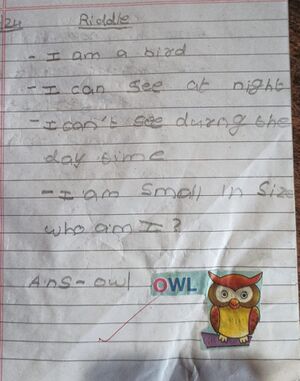 24 Riddle
- I am a bird
- I can see at night
- I can't see durng the
day time
- I am small in size
who am I?
Ans - owl OWL